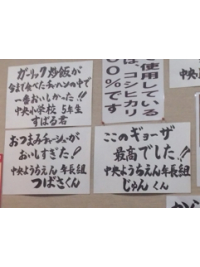 ガーリック炒飯が
今まで食べたチャーハンの中で
一番おいしかった!!
中央小学校 5年生
すばる君
使用している
は、コシヒカリ
00%です
中央
おつまみチャーシューが
おいしすぎた!
中央ようちえん年長組
つばさくん
このギョーザ
最高でした!!
中央ようちえん年長組
じゅんくん